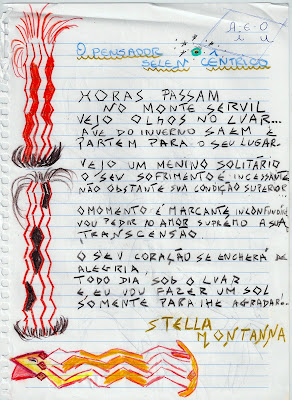 A E O
I U
O PENSADOR
SELENICÊNTRICO
HORAS PASSAM
NO MONTE SERVIL
VEJO OLHOS NO LUAR...
AVE DO INVERNO SAEM E
PARTEM PARA O SEU LUGAR.
VEJO UM MENINO SOLITÁRIO
O SEU SOFRIMENTO É INCESSANTE
NÃO OBSTANTE SUA CONDIÇÃO SUPERIOR...
O MOMENTO É MARCANTE, INCONFUNDÍVEL
VOU PEDIR AO AMOR SUPREMO A SUA
TRANSCENSÃO.
O SEU CORAÇÃO SE ENCHERÁ DE
ALEGRIA,
TODO DIA SOB O LUAR
E EU VOU FAZER UM SOL
SOMENTE PARA LHE AGRADAR...
STELLA
MONTANNA